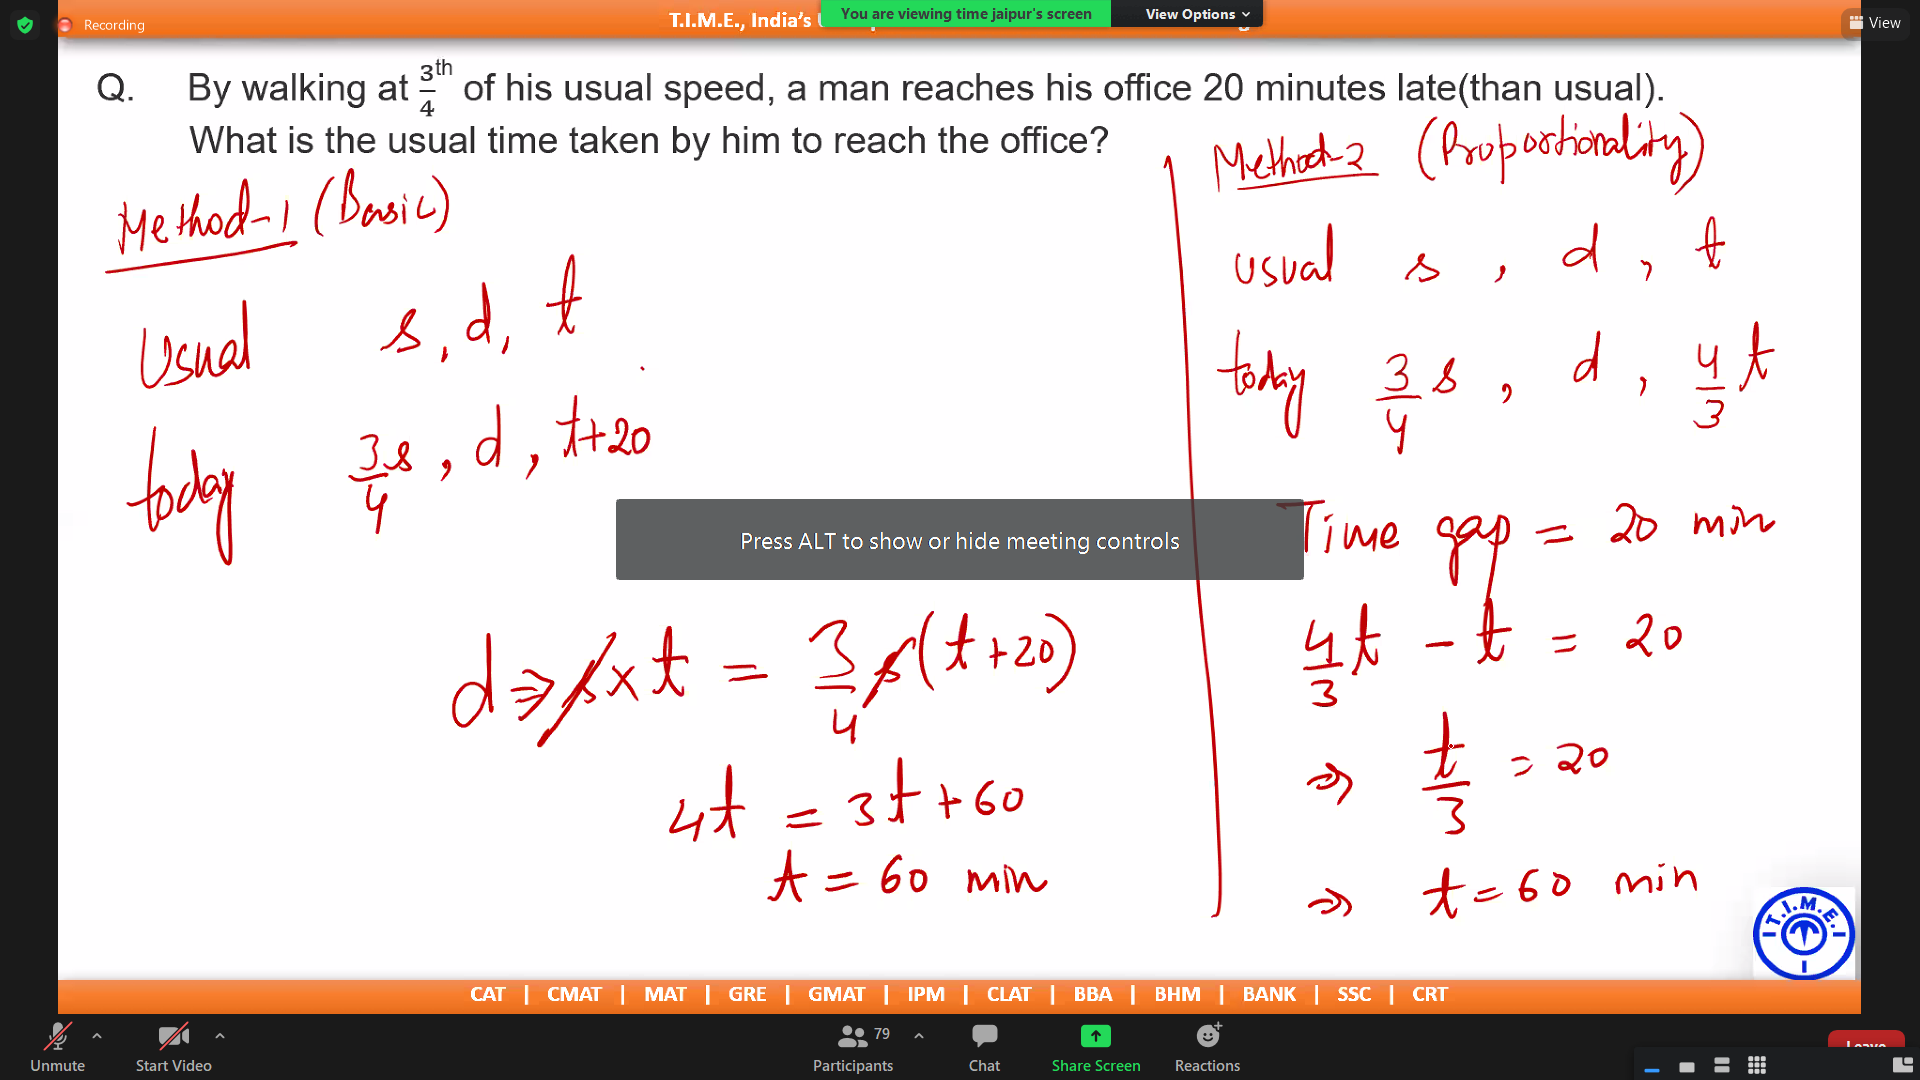 Recording
T.I.M.E., India's
You are viewing time jaipur's screen
View Options
View
Q. By walking at 3/4 th of his usual speed, a man reaches his office 20 minutes late(than usual).
What is the usual time taken by him to reach the office?
Method-1 (Basic)
Usual s, d, t
today 3/4 s, d, t+20
d ⇒ s x t = 3/4 s (t+20)
4t = 3t + 60
t = 60 min
Method-2 (Proportionality)
usual s, d, t
today 3/4 s, d, 4/3 t
Time gap = 20 min
4/3 t - t = 20
⇒ t/3 = 20
⇒ t = 60 min
Press ALT to show or hide meeting controls
T.I.M.E.
CAT | CMAT | MAT | GRE | GMAT | IPM | CLAT | BBA | BHM | BANK | SSC | CRT
Unmute
Start Video
79
Participants
Chat
Share Screen
Reactions
Leave